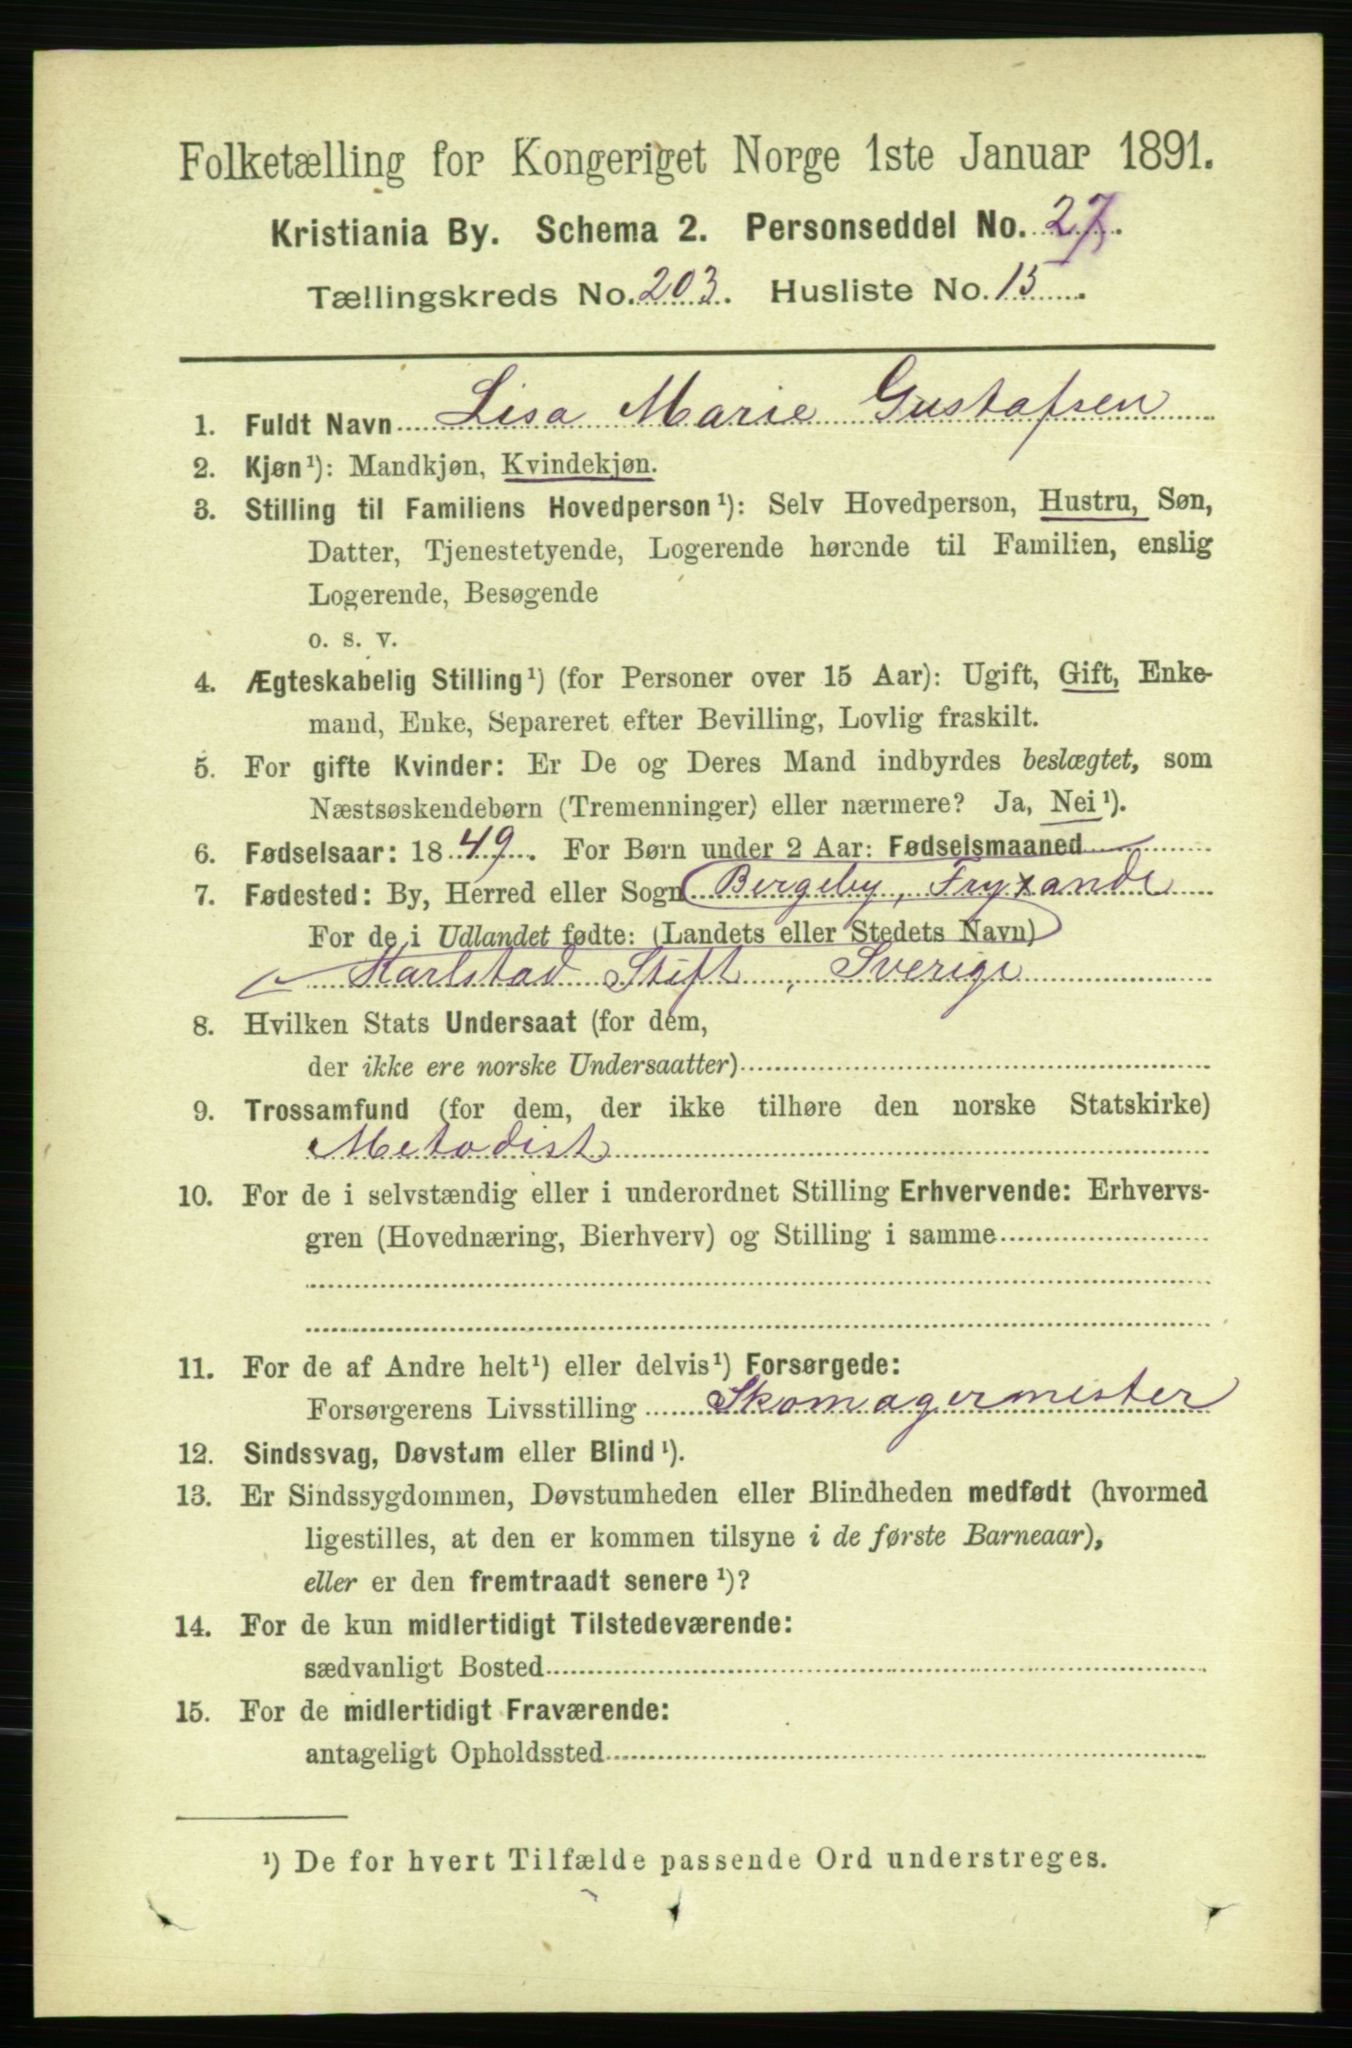 Folketælling for Kongeriget Norge 1ste Januar 1891.
Kristiania By. Schema 2. Personseddel No. 27.
Tællingskreds No. 203. Husliste No. 15.
1. Fuldt Navn Lisa Marie Gustafsen
2. Kjøn¹): Mandkjøn, Kvindekjøn.
3. Stilling til Familiens Hovedperson¹): Selv Hovedperson, Hustru, Søn,
Datter, Tjenestetyende, Logerende hørende til Familien, enslig
Logerende, Besøgende
o. s. v.
4. Ægteskabelig Stilling¹) (for Personer over 15 Aar): Ugift, Gift, Enke-
mand, Enke, Separeret efter Bevilling, Lovlig fraskilt.
5. For gifte Kvinder: Er De og Deres Mand indbyrdes beslægtet, som
Næstsøskendebørn (Tremenninger) eller nærmere? Ja, Nei¹).
6. Fødselsaar: 1849. For Børn under 2 Aar: Fødselsmaaned
7. Fødested: By, Herred eller Sogn Bergeby, Fryxande
For de i Udlandet fødte: (Landets eller Stedets Navn)
Karlstad Stift, Sverige
8. Hvilken Stats Undersaat (for dem,
der ikke ere norske Undersaatter)
9. Trossamfund (for dem, der ikke tilhøre den norske Statskirke)
Metodist
10. For de i selvstændig eller i underordnet Stilling Erhvervende: Erhvervs-
gren (Hovednæring, Bierhverv) og Stilling i samme
11. For de af Andre helt¹) eller delvis¹) Forsørgede:
Forsørgerens Livsstilling Skomagermester
12. Sindssvag, Døvstum eller Blind¹).
13. Er Sindssygdommen, Døvstumheden eller Blindheden medfødt (hvormed
ligestilles, at den er kommen tilsyne i de første Barneaar),
eller er den fremtraadt senere¹)?
14. For de kun midlertidigt Tilstedeværende:
sædvanligt Bosted
15. For de midlertidigt Fraværende:
antageligt Opholdssted
¹) De for hvert Tilfælde passende Ord understreges.